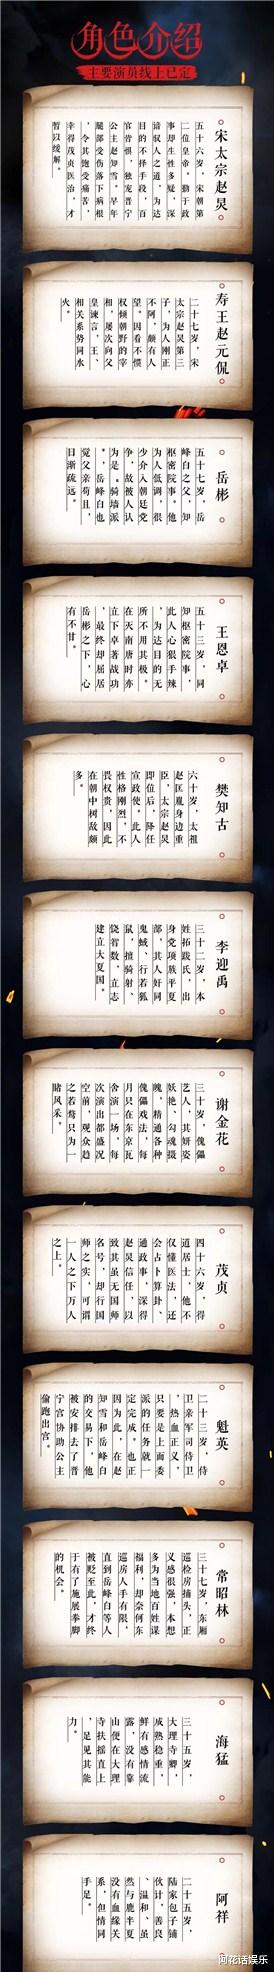 角色介绍
主要演员线上已定
宋太宗赵炅
五十六岁，宋朝第
二位皇帝。勤于政
事却生性多疑，深
谙驭人之道，为达
目的不择手段，百
官皆惧，独宠晋宁
公主赵知雪。早年
腿部受伤落下病根
，令其饱受痛苦，
幸得茂贞医治，才
暂以缓解。
寿王赵元侃
二十七岁，宋
太宗赵炅第三
子，为人刚正
不阿，颇有人
望。因看不惯
权倾朝野的宰
相，屡次向父
皇谏言，王、
相关系势同水
火。
岳彬
五十七岁，岳
峰白之父，知
枢密院事。他
为人低调，很
少介入朝廷党
争，故被人认
为是“骑墙派
”，岳峰白也
觉父亲苟且，
日渐疏远。
王恩卓
五十三岁，同
知枢密院事，
此人心狠手辣
，为达目的无
所不用其极。
在灭南唐时亦
立下卓著战功
，最终却屈居
岳彬之下，心
有不甘。
樊知古
六十岁，太祖
赵匡胤身边重
臣，太宗赵炅
即位后，降任
宣政使。此人
性格刚烈，不
畏权贵，因此
在朝中树敌颇
多。
李迎禹
三十二岁，本
姓拓跋氏，出
身党项族平夏
部，其人奸同
鬼蜮、行若狐
鼠，擅骑射、
饶智数，立志
建立大夏国。
谢金花
三十岁，傀儡
艺人，其妍姿
妖艳、勾魂摄
魄，精通各种
傀儡戏法，每
月只在东京瓦
舍演一场，每
次演出都盛况
空前，观众趋
之若鹜只为一
睹风采。
茂贞
四十六岁，得
道居士，他不
仅懂医法，还
会占卜算卦、
通政事，深得
赵炅信任，以
致其虽无国师
名号，却行国
师之实，可谓
一人之下万人
之上。
魁英
二十三岁，侍
卫亲军司侍卫
，热血正义，
只要是上面委
派的任务就一
定完成。也正
因为此，在赵
知雪和岳峰白
的交易下，他
被安排去了晋
宁宫协助公主
偷跑出宫。
常昭林
三十七岁，东厢
巡检房捕头，正
义感很强，本想
多为当地百姓谋
福利，却奈何东
巡房人手有限，
直到岳峰白等人
被贬至此，才终
于有了施展拳脚
的机会。
海猛
三十五岁，
大理寺卿，
成熟稳重，
鲜有感情流
露，没有靠
山便在大理
寺扶摇直上
，足见其能
力。
阿祥
二十五岁，
陆家包子铺
伙计，善良
、温和、虽
然与鹿半夏
没有血缘关
系，但情同
手足。
阿花话娱乐